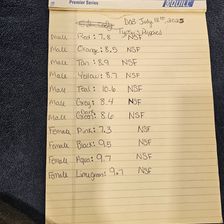 Premier Series
DOB July 12th, 2025
Puppies
Male Red: 7.8 NSF
Male Orange: 8.5 NSF
Male Tan: 8.9 NSF
Male Yellow: 8.7 NSF
Male Teal: 10.6 NSF
Male Grey: 8.4 NSF
Male Dark Green: 8.6 NSF
Female Pink: 7.3 NSF
Female Black: 9.5 NSF
Female Aqua: 9.7 NSF
Female Limegreen: 9.7 NSF